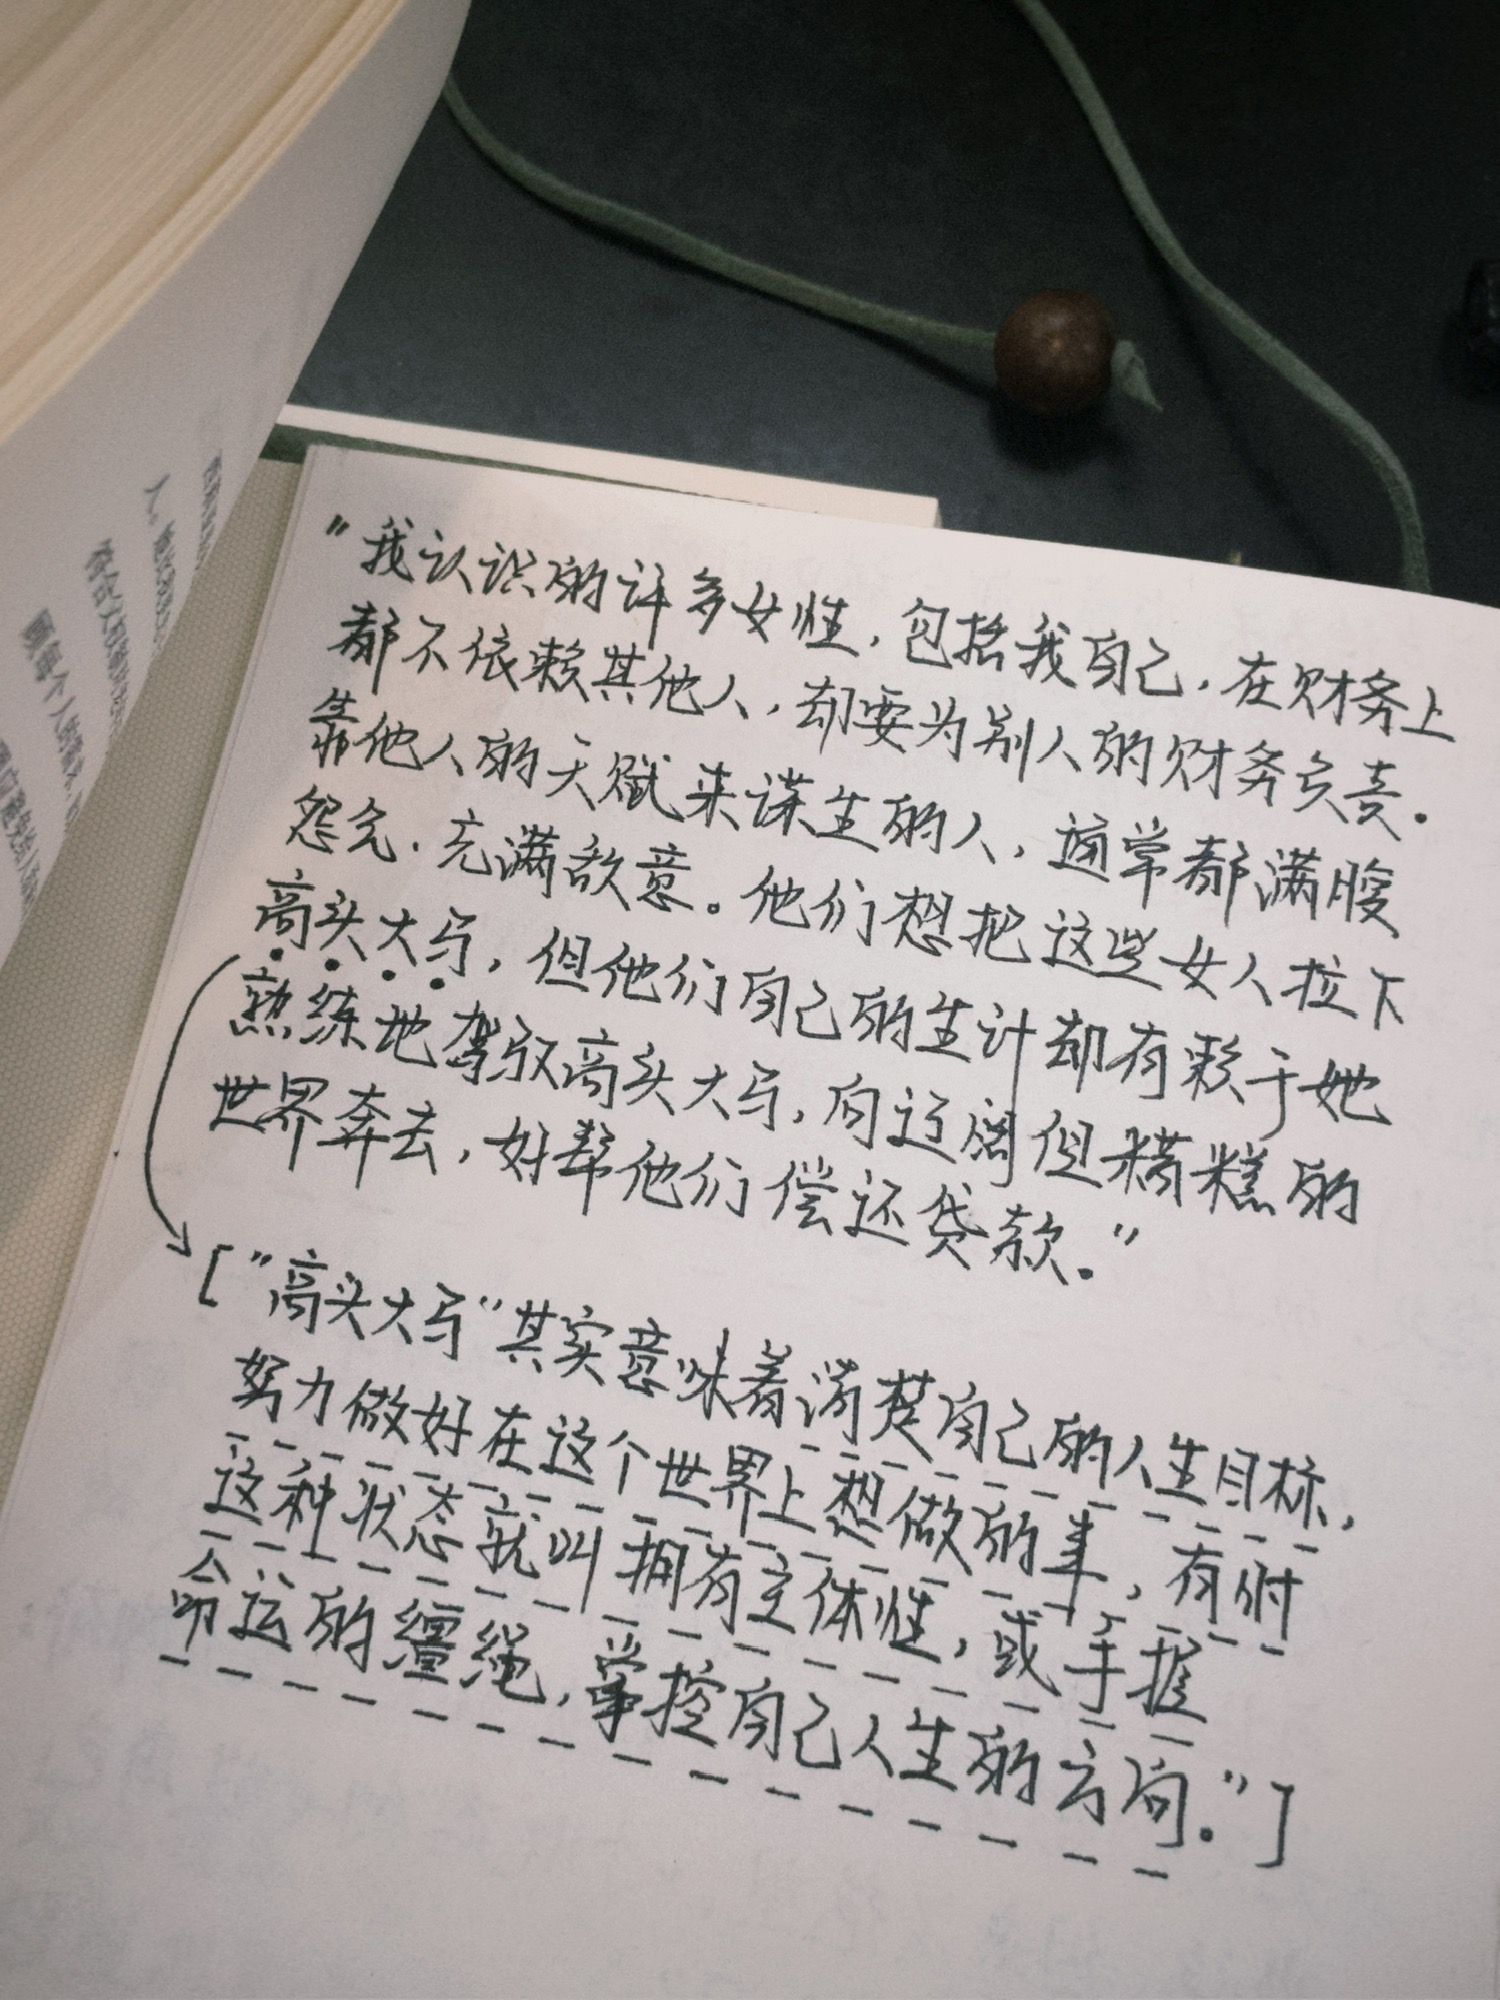 "我认识的许多女性，包括我自己，在财务上
都不依赖其他人，却要为别人的财务负责。
靠他人的天赋来谋生的人，通常都满腹
怨气，充满敌意。他们想把这些女人拉下
高头大马，但他们自己的生计却有赖于她
熟练地驾驭高头大马，向辽阔但糟糕的
世界奔去，好帮他们偿还贷款。"
["高头大马"其实意味着清楚自己的人生目标，
努力做好在这个世界上想做的事，有时
这种状态就叫拥有主体性，或手握
命运的缰绳，掌控自己人生的方向。"]